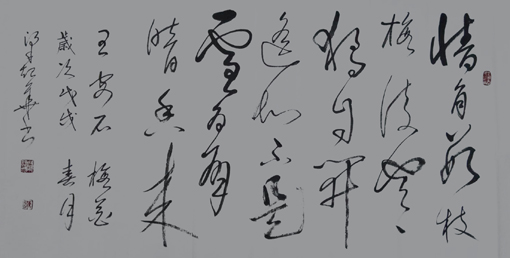 墙角数枝
梅凌寒
独自開
遥知不是
雪为有
暗香来
王安石 梅花
歲次戊戌 春月